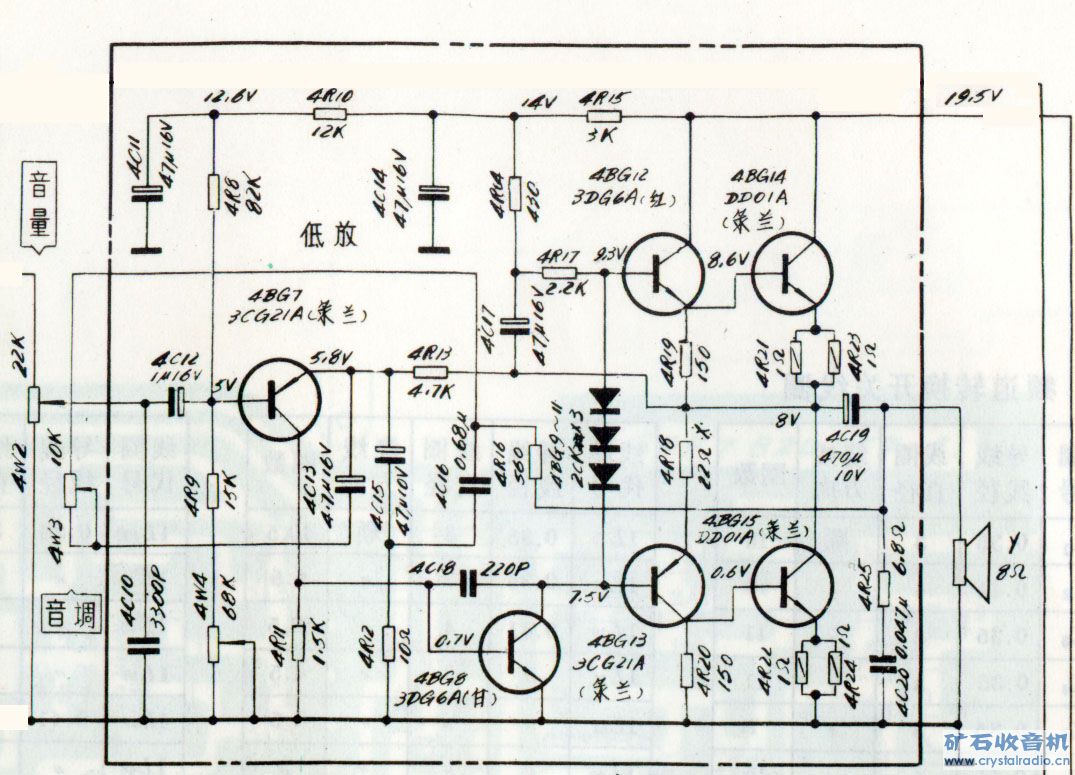 12.6V
4R10
12K
14V
4R15
3K
19.5V
4C11
47μ16V
4R8
82K
4C14
47μ16V
4R14
430
4BG12
3DG6A(红)
4BG14
DD01A
音量
低放
4R17
2.2K
9.3V
8.6V
4BG7
3CG21A
4C17
47μ16V
22K
4C12
1μ16V
5V
5.8V
4R13
4.7K
4R19
150
4R21
1Ω
4R23
1Ω
8V
4C19
470μ
10V
4W2
4W3
4R9
15K
4C13
4.7μ16V
4C15
47μ10V
4C16
0.68μ
4R16
560
4BG9~11
4R18
22Ω*
4BG15
DD01A
4R25
6.8Ω
Y
8Ω
音调
4C10
3300P
4W4
68K
4R11
1.5K
4R12
10Ω
4C18
220P
0.7V
4BG8
3DG6A(甘)
7.5V
0.6V
4BG13
3CG21A
4R20
150
4R22
1Ω
4R24
1Ω
4C20
0.047μ
矿石收音机
www.crystalradio.cn